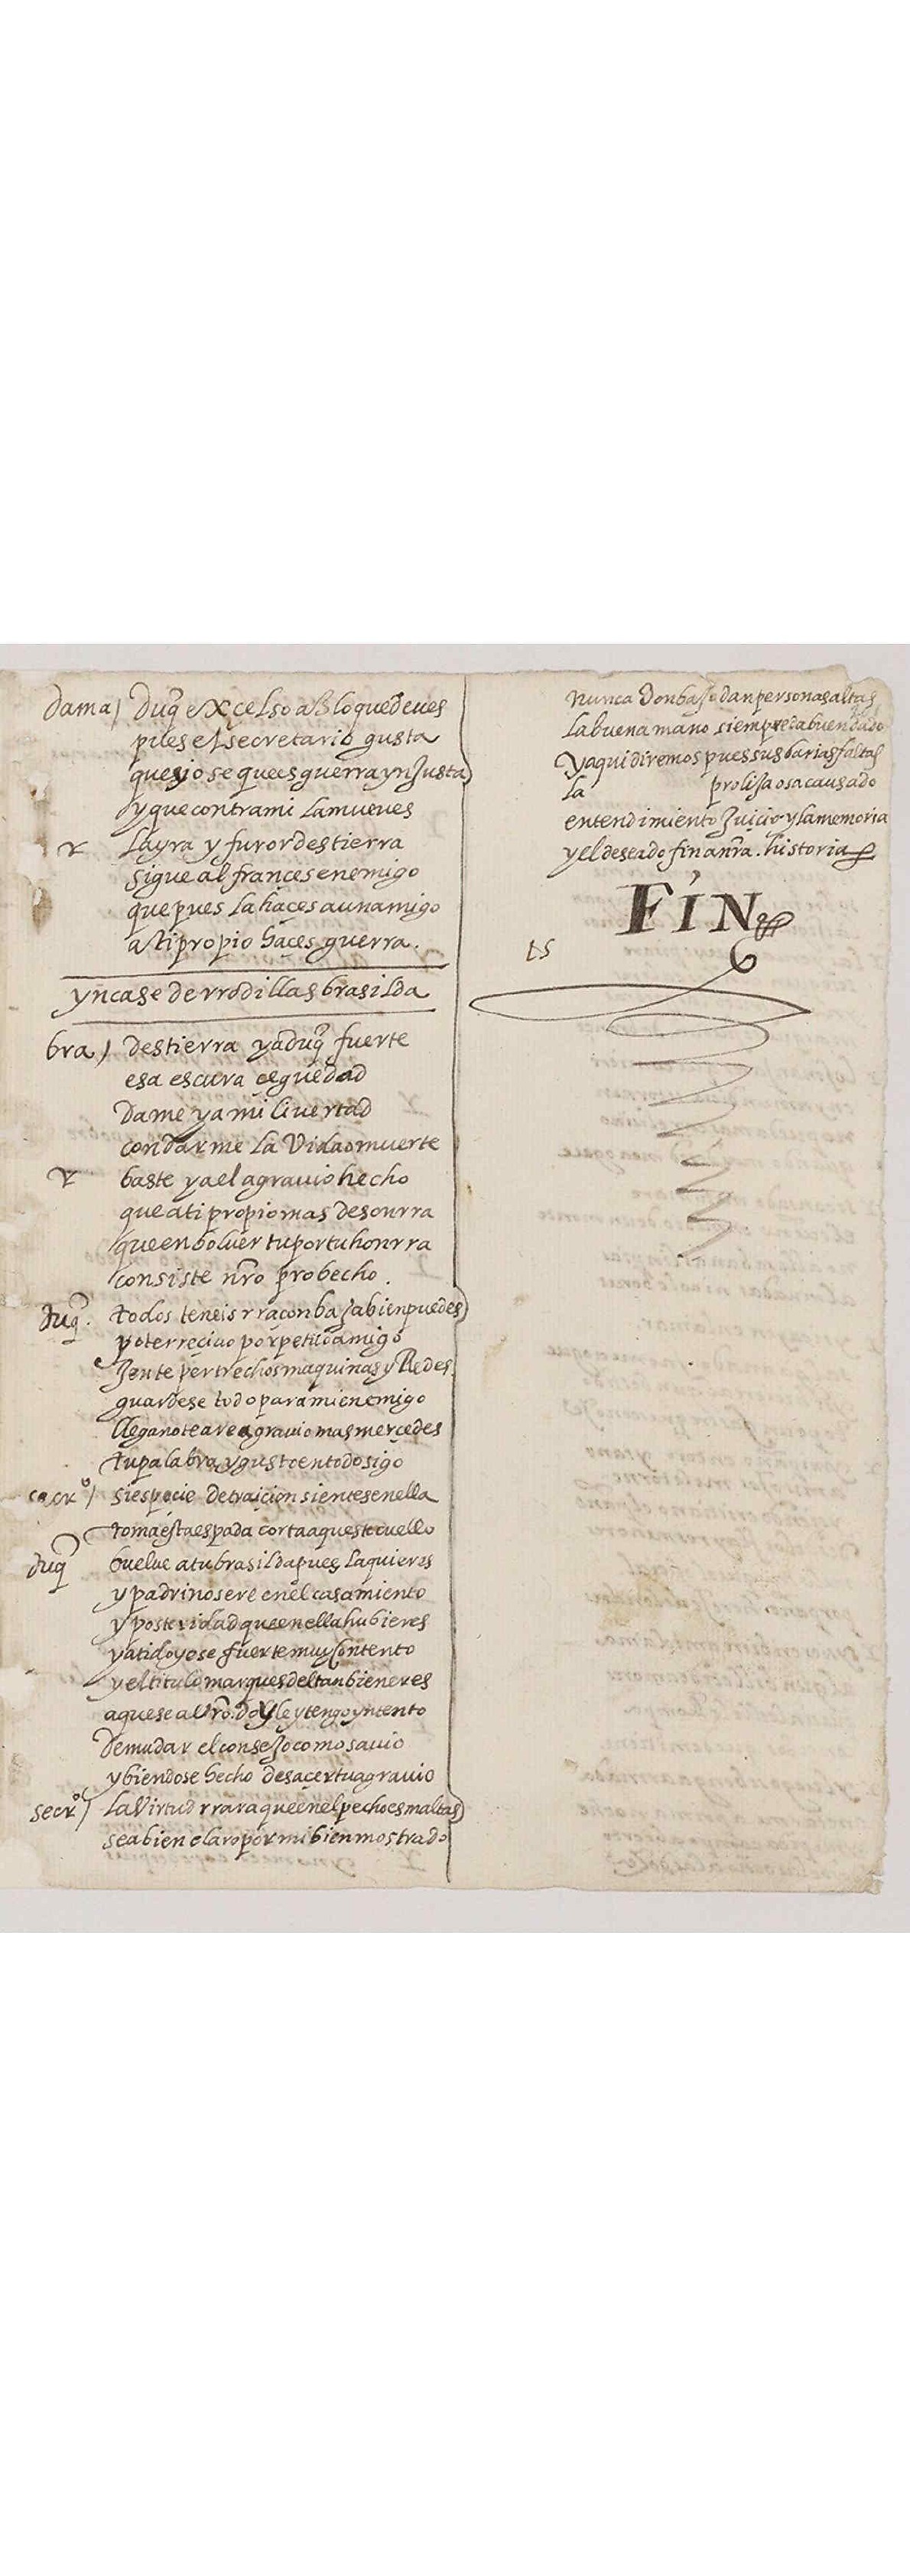 dama) duq̃ excelso aslo que deues
pues el secretario gusta
ques josequees guerra ynJusta)
y que contra mi la mueues
r la yra y furor destierra
sigue al françes enemigo
que pues la haçes a un amigo
a ti propio haçes guerra.
yncase de rrodillas brasilda
bra) destierra ya duq̃ fuerte
esa escura çeguedad
Dame ya mi livertad
con darme la Vida o muerte
r baste ya el agrauio hecho
que a ti propio mas desonrra
que en boluer tu por tu honrra
consiste nr̃o probecho.
duq̃. todos teneis rraçon baJa bien puedes)
y oter reçiuo por petuo amigo
Jente pertrechos maquinas y Redes
guardese todo para mi enemigo
llegano teare agrauio mas merçedes
tu palabra y gusto en todo sigo
secrº) si espeçie de traiçion sientes en ella
toma esta espada corta aqueste cuello
duq̃ buelue a tu brasilda pues la quieres
y padrino sere en el casamiento
y posteridad que en ella hubieres
y a ti doyose fuerte muy contento
y el titulo marques del tanbien eres
aquese a vr̃o. doy le y tengo yntento
Demudar el conseJo como sauio
y biendose hecho desaçer tu agrauio
secrº) la Virtud rrara que en el pecho esmaltas)
sea bien claro por mi bien mostrado
nunca Don baJo dan personas altas
la buena mano siempre da buen dado
y aqui diremos pues sus barias faltas
la proliJa os a causado
entendimiento Juiçio y la memoria
y el deseado fin a nr̃a. historia
FIN